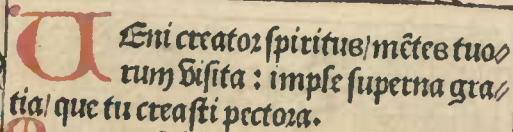 VEni creator spiritus/ mētes tuo⸗
rum visita : imple superna gra⸗
tia/ que tu creasti pectora.